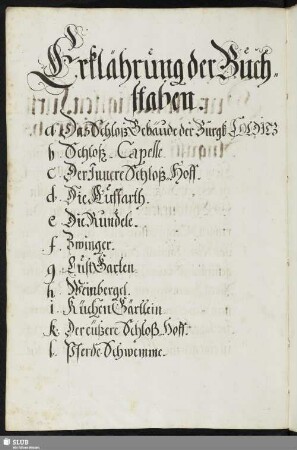 Erklährung der Buch-
staben.
a. Das Schloß Gebäude der Burgk
b. Schloß Capelle
c. Der Innere Schloß Hoff.
d. Die Auffarth.
e. Die Rundele.
f. Zwinger.
g. Lust Garten.
h. Weinberge.
i. Küchen Gärtlein
k. Der eüßere Schloß Hoff.
l. Pferde Schwemme.
SLUB